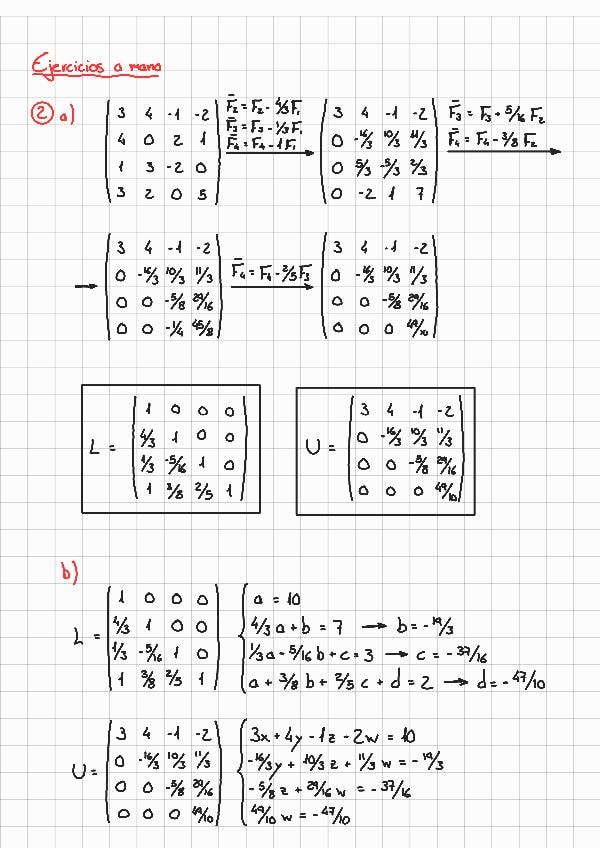 Ejercicios a mano
2 a)
3 4 -1 -2
4 0 2 1
1 3 -2 0
3 2 0 5
F̄₂ = F₂ - 4/3 F₁
F̄₃ = F₃ - 1/3 F₁
F̄₄ = F₄ - 1 F₁
3 4 -1 -2
0 -16/3 10/3 11/3
0 5/3 -5/3 2/3
0 -2 1 7
F̄₃ = F₃ + 5/16 F₂
F̄₄ = F₄ - 3/8 F₂
3 4 -1 -2
0 -16/3 10/3 11/3
0 0 -5/8 29/16
0 0 -1/4 45/8
F̄₄ = F₄ - 2/5 F₃
3 4 -1 -2
0 -16/3 10/3 11/3
0 0 -5/8 29/16
0 0 0 49/10
L =
1 0 0 0
4/3 1 0 0
1/3 -5/16 1 0
1 3/8 2/5 1
U =
3 4 -1 -2
0 -16/3 10/3 11/3
0 0 -5/8 29/16
0 0 0 49/10
b)
L =
1 0 0 0
4/3 1 0 0
1/3 -5/16 1 0
1 3/8 2/5 1
a = 10
4/3 a + b = 7 → b = -19/3
1/3 a - 5/16 b + c = 3 → c = -37/16
a + 3/8 b + 2/5 c + d = 2 → d = -47/10
U =
3 4 -1 -2
0 -16/3 10/3 11/3
0 0 -5/8 29/16
0 0 0 49/10
3x + 4y - 1z - 2w = 10
-16/3 y + 10/3 z + 11/3 w = -19/3
-5/8 z + 29/16 w = -37/16
49/10 w = -47/10